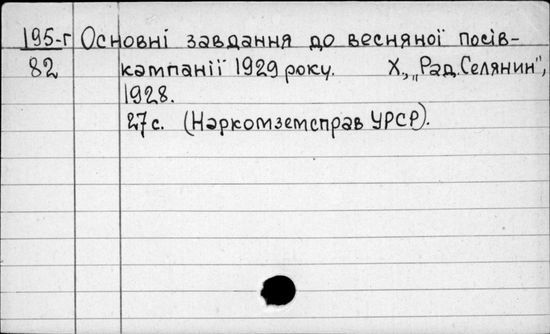 195-г Основні завдання до весняної посів-
82 кампанії 1929 року. Х., „Рад. Селянин",
1928.
27 с. (Наркомземсправ УРСР).